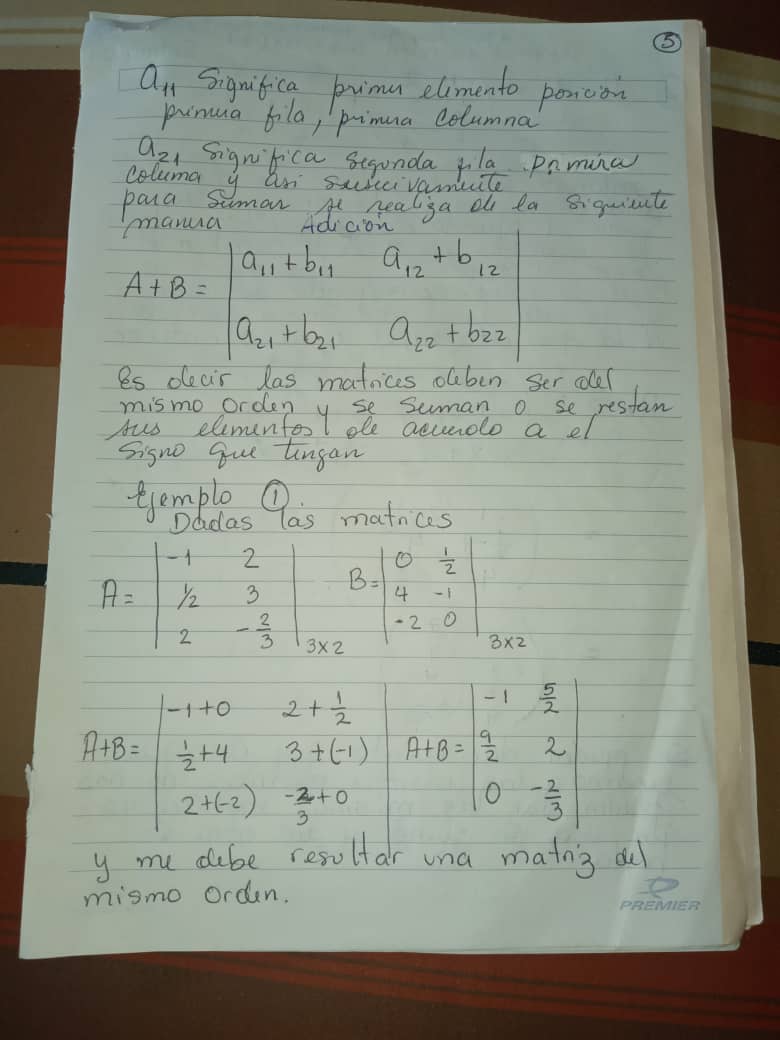 5
a₁₁ Significa primer elemento posición
primera fila, primera Columna
a₂₁ Significa Segunda fila primera
columa y asi susecivamente
para Sumar se realiza de la siguiente
manera Adición
A+B = | a₁₁+b₁₁ a₁₂+b₁₂ |
| a₂₁+b₂₁ a₂₂+b22 |
Es decir las matrices deben ser del
mismo orden y se suman o se restan
sus elementos de acuerdo a el
Signo que tengan
Ejemplo ①
Dadas las matrices
A= | -1 2 | B= | 0 1/2 |
| 1/2 3 | | 4 -1 |
| 2 -2/3 | 3x2 | -2 0 | 3x2
A+B= | -1+0 2+1/2 | A+B= | -1 5/2 |
| 1/2+4 3+(-1) | | 9/2 2 |
| 2+(-2) -2/3+0 | | 0 -2/3 |
y me debe resultar una matriz del
mismo orden.
PREMIER